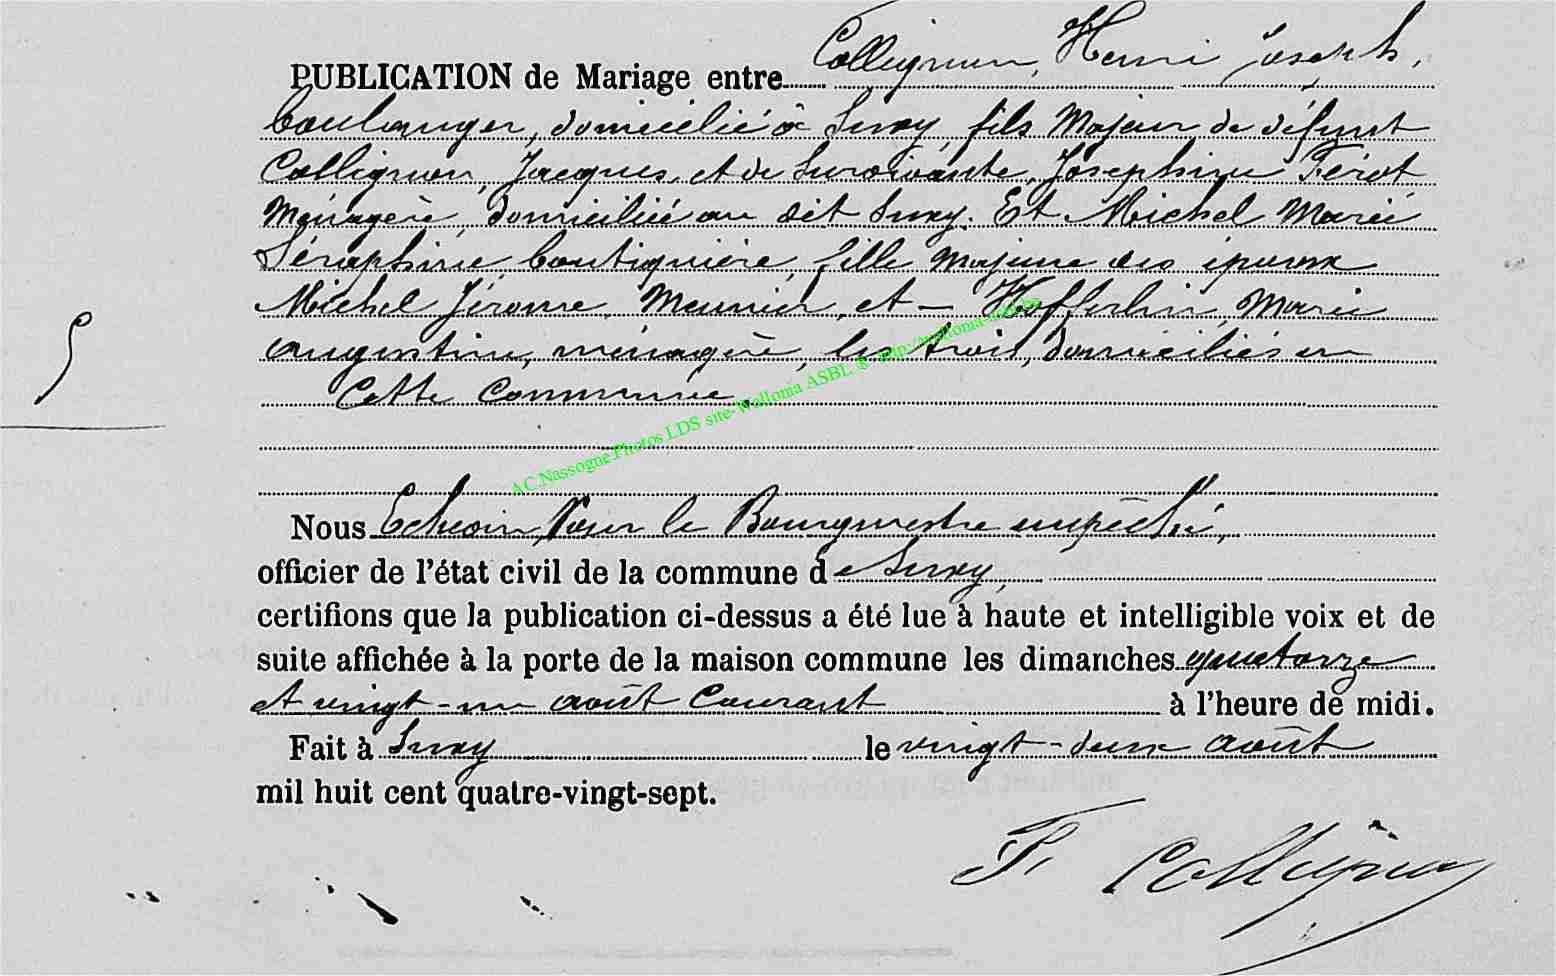 PUBLICATION de Mariage entre Collignon, Henri Joseph,
boulanger, domicilié à Suxy, fils Majeur de défunt
Collignon, Jacques, et de Survivante, Joséphine Férot
Ménagère, domiciliée au dit Suxy. Et Michel Marie
Séraphine, boutiquière, fille majeure des époux
Michel Jérome, Meunier, et – Hofferlin, Marie
augustine, ménagère, les trois, domiciliés en
Cette Commune.
AC Nassogne Photos LDS site-Wallonia ASBL ® http://wallonia-asbl.be
5
Nous Echevin pour le Bourgmestre empêché,
officier de l'état civil de la commune de Suxy,
certifions que la publication ci-dessus a été lue à haute et intelligible voix et de
suite affichée à la porte de la maison commune les dimanches quatorze
et vingt-un août Courant à l'heure de midi.
Fait à Suxy le vingt-deux août
mil huit cent quatre-vingt-sept.
F. Collignon